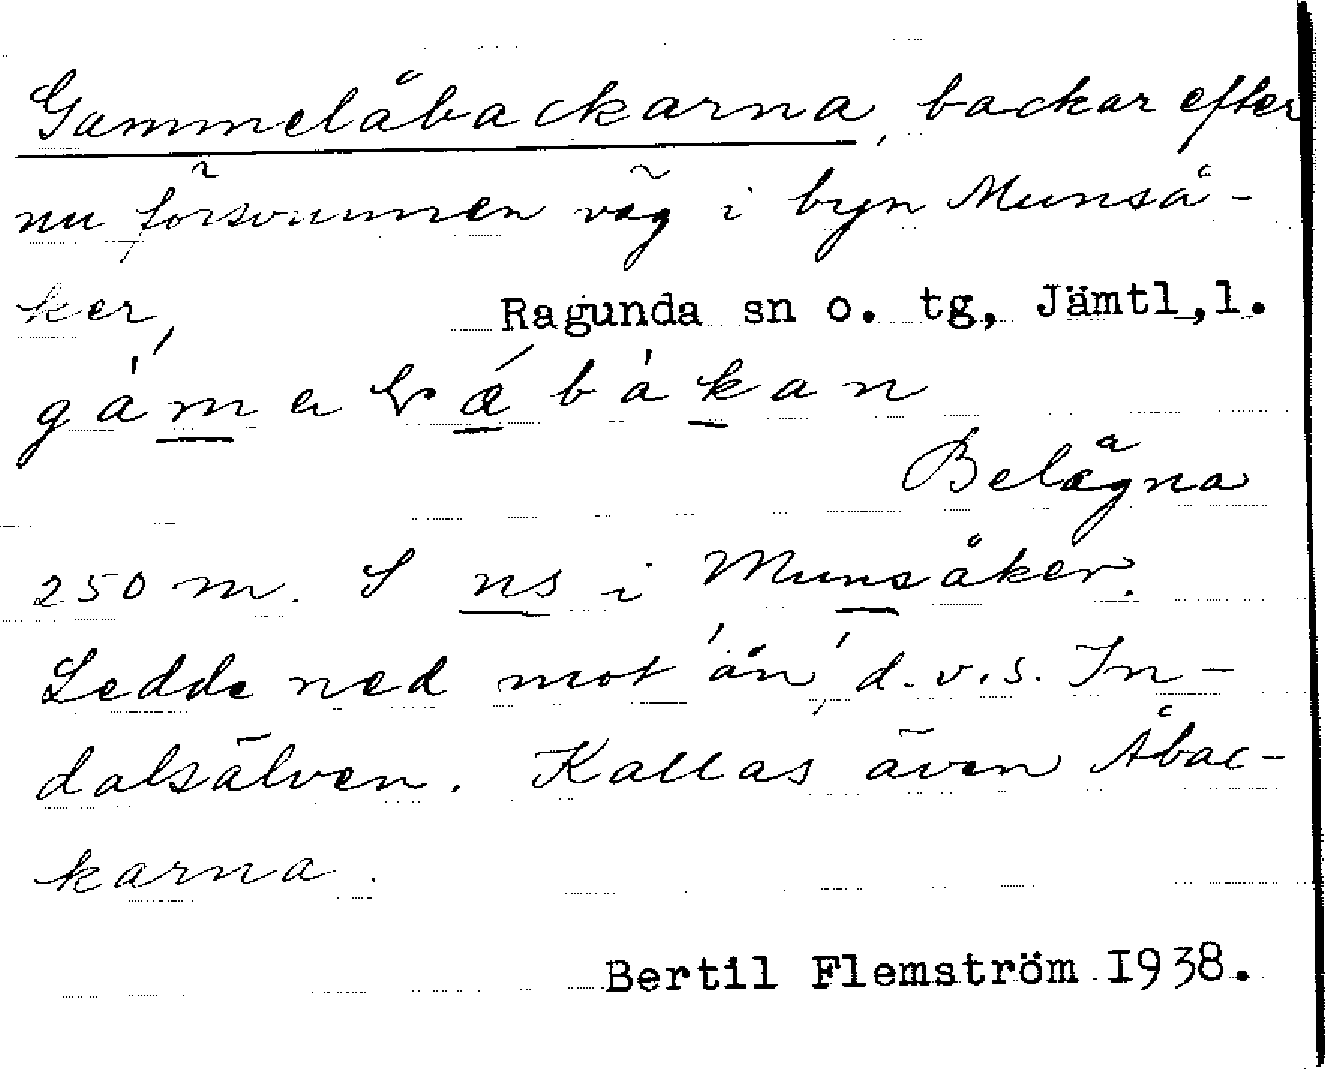 Gammelåbackarna, backar efter
nu försvunnen väg i byn Munså-
ker,
Ragunda sn o. tg, Jämtl,l.
Belägna
250 m. S ns i Munsåker.
Ledde ned mot 'ån', d.v.s. In-
dalsälven. Kallas även Åbac-
karna.
Bertil Flemström 1938.